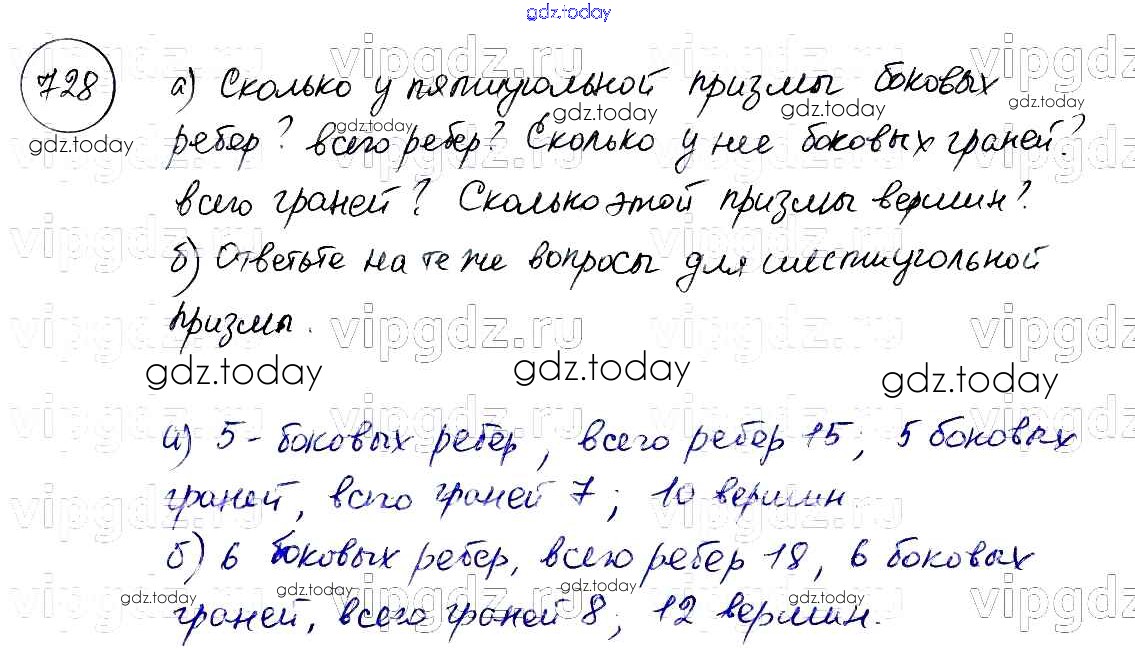 gdz.today
728
а) Сколько у пятиугольной призмы боковых
ребер? всего ребер? Сколько у нее боковых граней?
всего граней? Сколько этой призмы вершин?
б) Ответьте на те же вопросы для шестиугольной
призмы.
а) 5 - боковых ребер, всего ребер 15; 5 боковых
граней, всего граней 7; 10 вершин
б) 6 боковых ребер, всего ребер 18, 6 боковых
граней, всего граней 8; 12 вершин.
vipgdz.ru
gdz.today